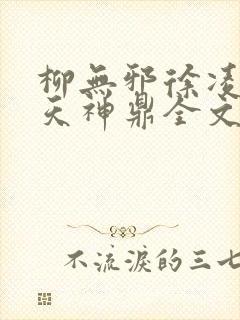 柳無邪徐凌
天神鼎全文
不流淚的三七